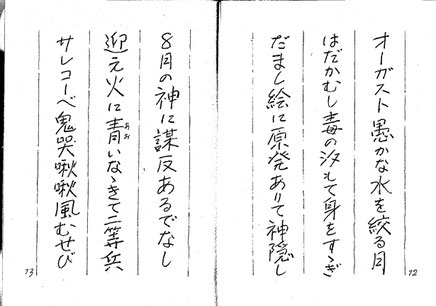 オーガスト愚かな水を絞る月
はだかむし毒の汐もて身をすゝぎ
だまし絵に原発ありて神隠し
12
8月の神に謀反あるでなし
迎え火に青いなゝきて二等兵
あお
サレコーベ鬼哭啾啾風むせび
13